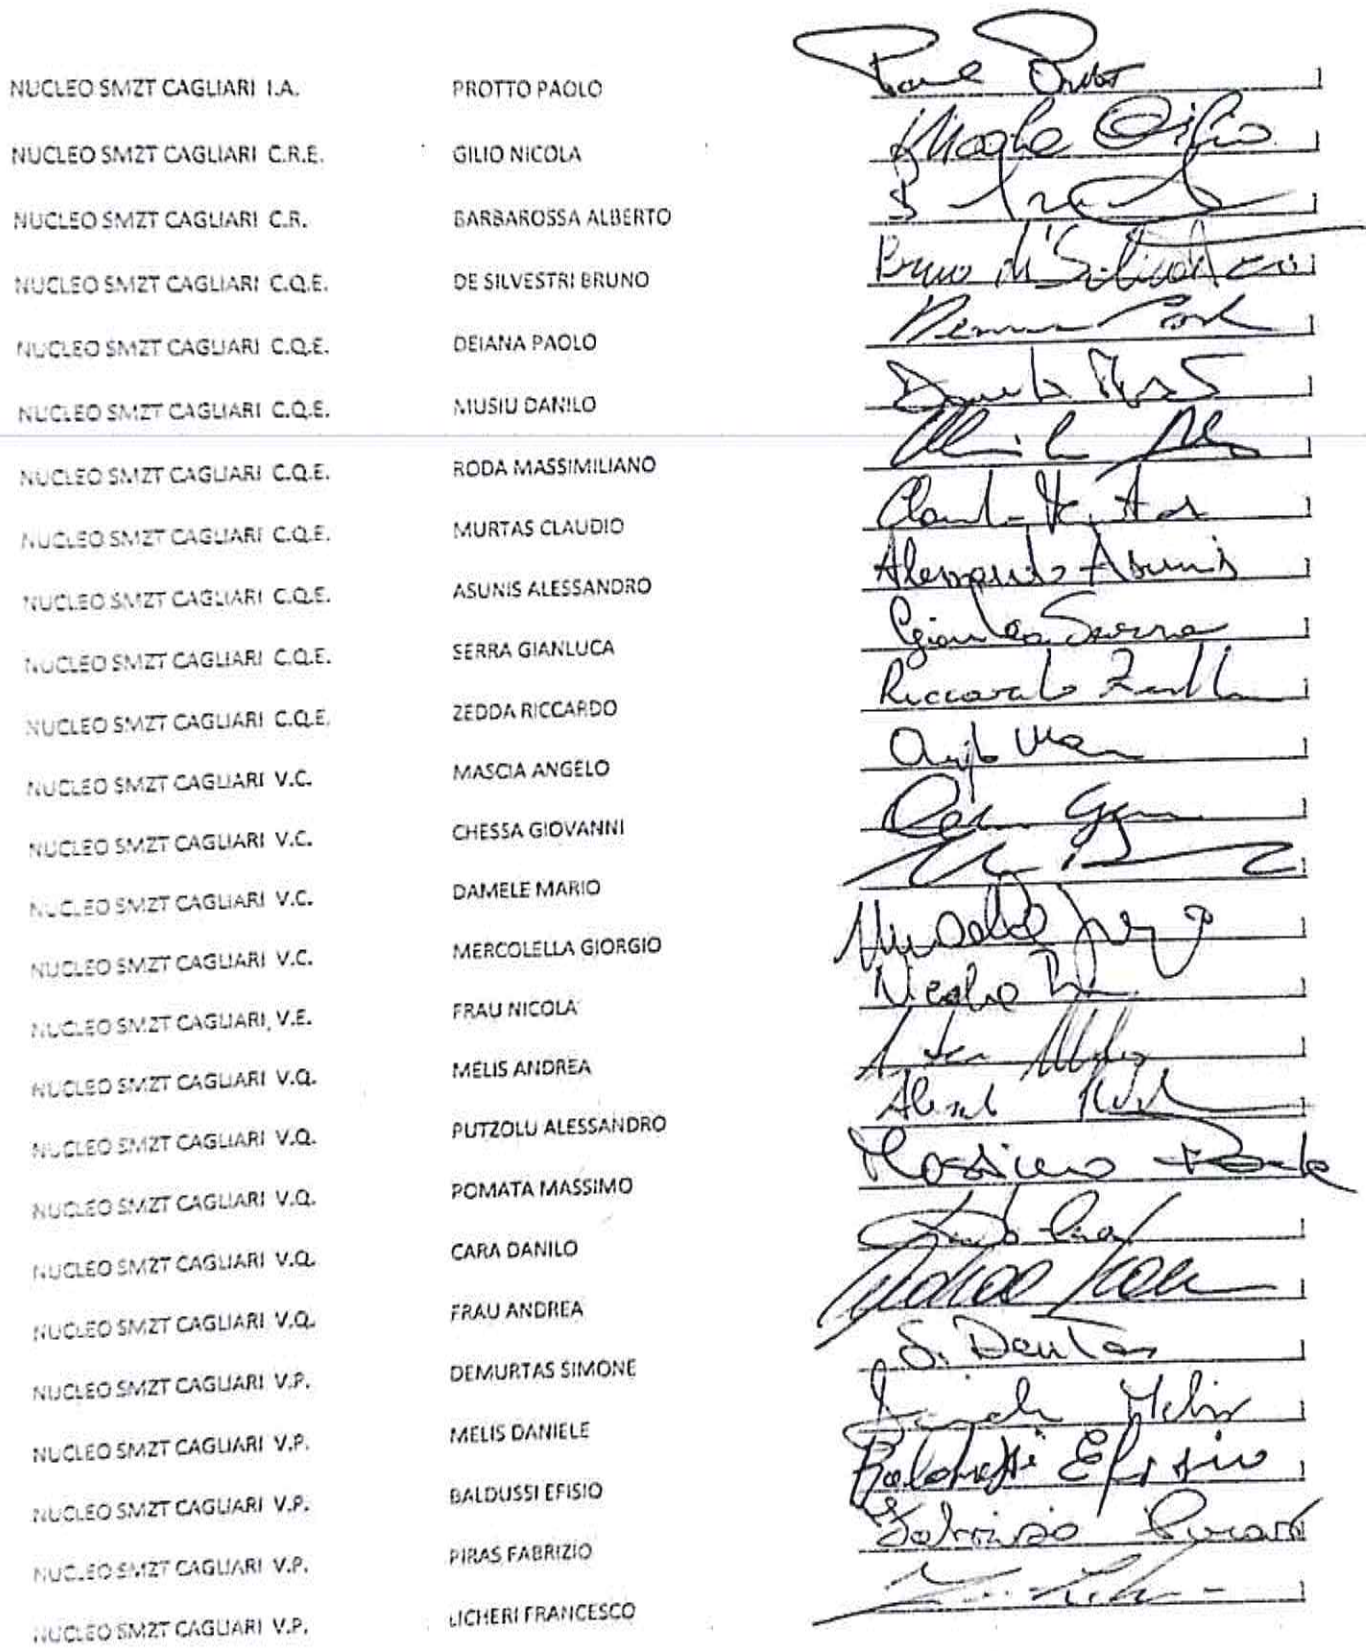 NUCLEO SMZT CAGLIARI I.A. PROTTO PAOLO
NUCLEO SMZT CAGLIARI C.R.E. GILIO NICOLA
NUCLEO SMZT CAGLIARI C.R. BARBAROSSA ALBERTO
NUCLEO SMZT CAGLIARI C.Q.E. DE SILVESTRI BRUNO Bruno
NUCLEO SMZT CAGLIARI C.Q.E. DEIANA PAOLO
NUCLEO SMZT CAGLIARI C.Q.E. MUSIU DANILO
NUCLEO SMZT CAGLIARI C.Q.E. RODA MASSIMILIANO
NUCLEO SMZT CAGLIARI C.Q.E. MURTAS CLAUDIO
NUCLEO SMZT CAGLIARI C.Q.E. ASUNIS ALESSANDRO Alessandro Asunis
NUCLEO SMZT CAGLIARI C.Q.E. SERRA GIANLUCA Gianluca Serra
NUCLEO SMZT CAGLIARI C.Q.E. ZEDDA RICCARDO Riccardo Zedda
NUCLEO SMZT CAGLIARI V.C. MASCIA ANGELO
NUCLEO SMZT CAGLIARI V.C. CHESSA GIOVANNI
NUCLEO SMZT CAGLIARI V.C. DAMELE MARIO
NUCLEO SMZT CAGLIARI V.C. MERCOLELLA GIORGIO
NUCLEO SMZT CAGLIARI V.E. FRAU NICOLA Nicola
NUCLEO SMZT CAGLIARI V.Q. MELIS ANDREA
NUCLEO SMZT CAGLIARI V.Q. PUTZOLU ALESSANDRO
NUCLEO SMZT CAGLIARI V.Q. POMATA MASSIMO Massimo
NUCLEO SMZT CAGLIARI V.Q. CARA DANILO
NUCLEO SMZT CAGLIARI V.Q. FRAU ANDREA Andrea Frau
NUCLEO SMZT CAGLIARI V.P. DEMURTAS SIMONE
NUCLEO SMZT CAGLIARI V.P. MELIS DANIELE Daniele Melis
NUCLEO SMZT CAGLIARI V.P. BALDUSSI EFISIO Baldussi Efisio
NUCLEO SMZT CAGLIARI V.P. PIRAS FABRIZIO Fabrizio
NUCLEO SMZT CAGLIARI V.P. LICHERI FRANCESCO